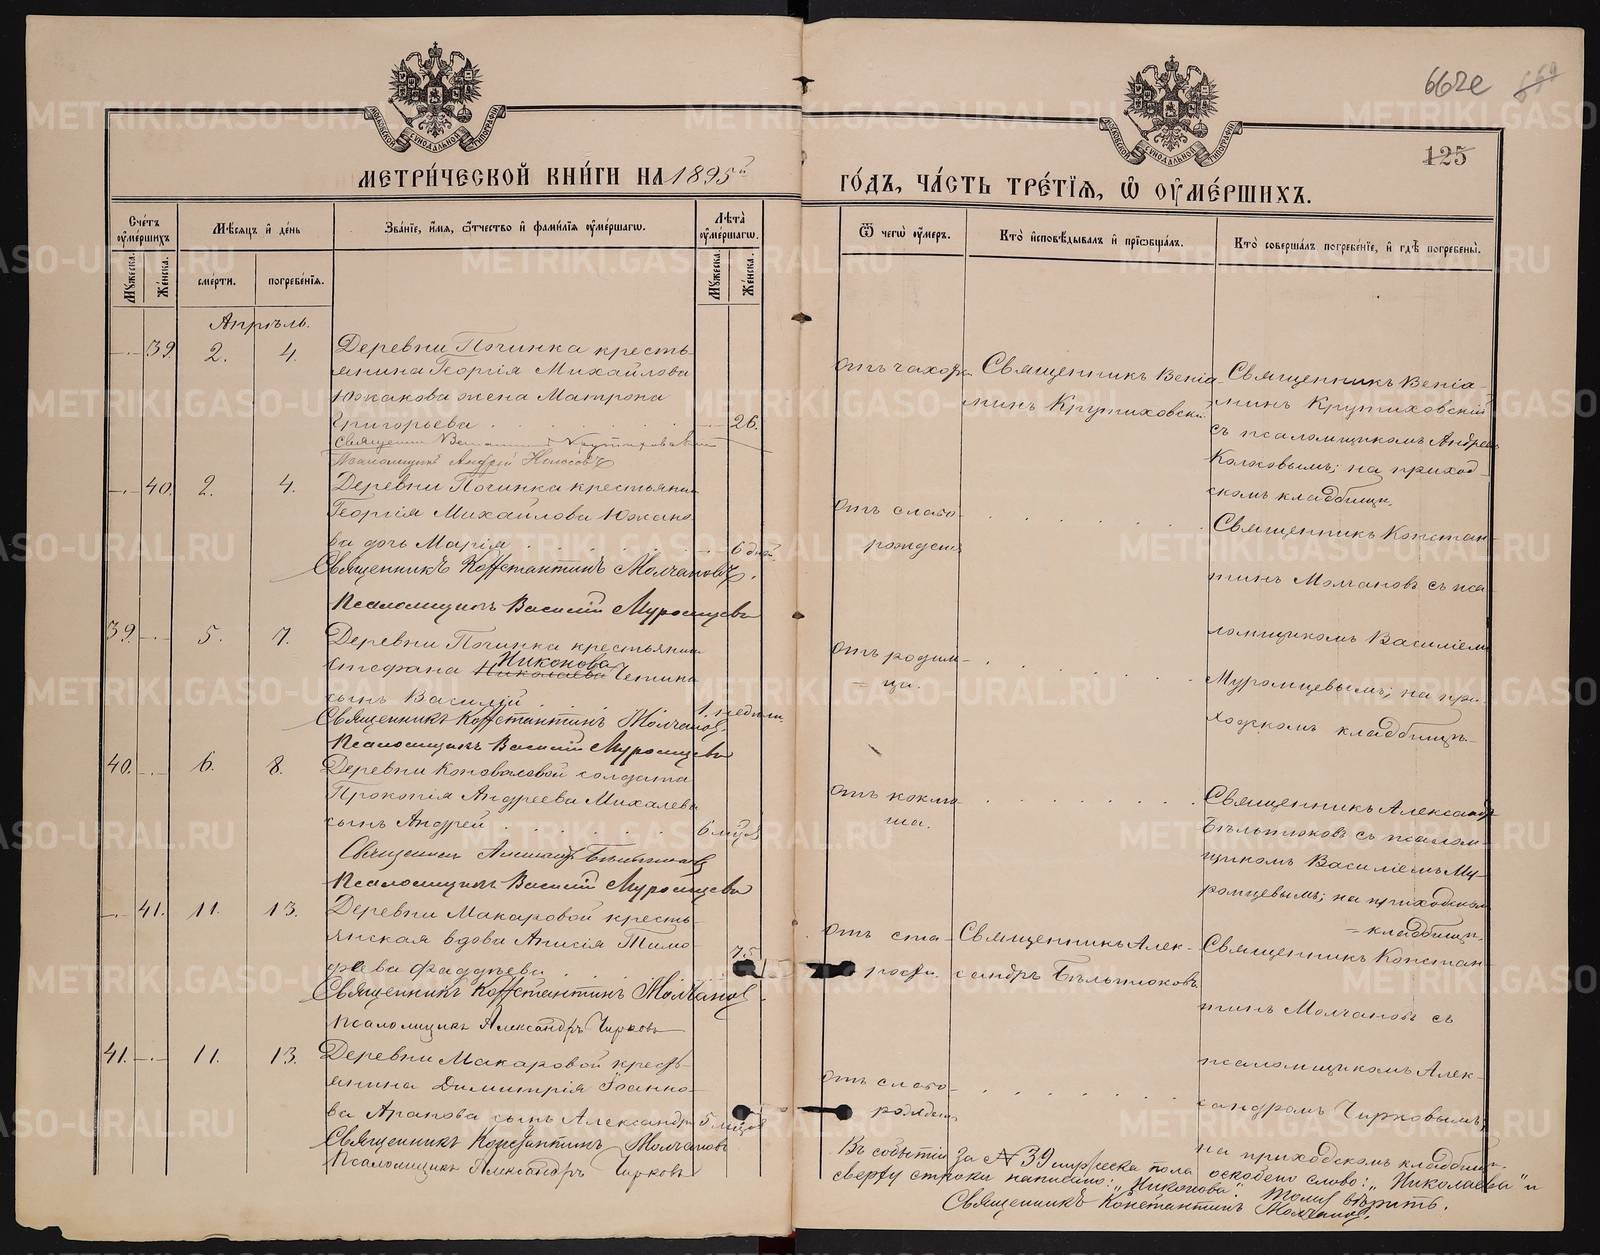 662е
125
МЕТРИ́ЧЕСКОЙ КНИ́ГИ НА 1895й
ГО́ДЪ, ЧА́СТЬ ТРЕ́ТІѦ, Ѡ ОУМЕ́РШИХЪ.
Счетъ оумершихъ
Мѣсѧцъ и день
Званіе, имѧ, ѿчество и фамиліѧ оумершагѡ.
Лѣта оумершагѡ.
Мужеска.
Женска.
смерти.
погребеніѧ.
Мужеска.
Женска.
Ѿ чегѡ оумеръ.
Кто исповѣдывалъ и пріѡбщалъ.
Кто совершалъ погребеніе, и гдѣ погребены.
Апрѣль.
39. 2. 4. Деревни Починка кресть-
янина Георгія Михайлова
Южакова жена Матрона
Григорьева 26.
Псаломщикъ Андрей
отъ чахотк.
Священникъ Веніа-
минъ Крутиховскій
Священникъ Веніа-
минъ Крутиховскій
съ псаломщикомъ Андреем
на приход-
скомъ кладбищѣ.
40. 2. 4. Деревни Починка крестьянина
Георгія Михайлова Южако-
ва дочь Марія 6 дней
Священникъ Константинъ Молчановъ.
Псаломщикъ Василій Муромцевъ
отъ слабо-
рожденія
Священникъ Констан-
тинъ Молчановъ съ пса-
ломщикомъ Василіемъ
Муромцевымъ; на при-
ходскомъ кладбищѣ
39. 5. 7. Деревни Починка крестьянина
Стефана Николаева Никонова
сынъ Василій 1 недѣли
Священникъ Константинъ Молчановъ.
Псаломщикъ Василій Муромцевъ
отъ родим-
ца.
40. 6. 8. Деревни Коноваловой солдата
Прокопія Андреева Михалева
сынъ Андрей 6 мцов
Священник Александр Бѣльтюков
Псаломщикъ Василій Муромцевъ
отъ коклю-
ша.
Священникъ Александръ
Бѣльтюковъ съ псалом-
щикомъ Василіемъ Му-
ромцевымъ; на приходском
кладбищѣ.
41. 11. 13. Деревни Макаровой кресть-
янская вдова Анисія Тимо-
феева Фаддѣева 75
Священникъ Константинъ Молчановъ.
Псаломщикъ Александръ Чирковъ
отъ ста-
рости.
Священникъ Алек-
сандръ Бѣльтюковъ
Священникъ Констан-
тинъ Молчановъ съ
псаломщикомъ Алек-
сандромъ Чирковымъ;
на приходскомъ кладбищѣ.
41. 11. 13. Деревни Макаровой крест-
янина Димитрія Іоанно-
ва Арапова сынъ Александръ 5 мцов
Священникъ Константинъ Молчановъ
Псаломщикъ Александръ Чирковъ
отъ слабо-
рожден.
Въ событіи за № 39 муж­еска пола оскоблено слово: „Николаева" и
сверху строки написано: „Никонова". Въ томъ вѣрить.
Священникъ Константинъ Молчановъ.
METRIKI.GASO-URAL.RU